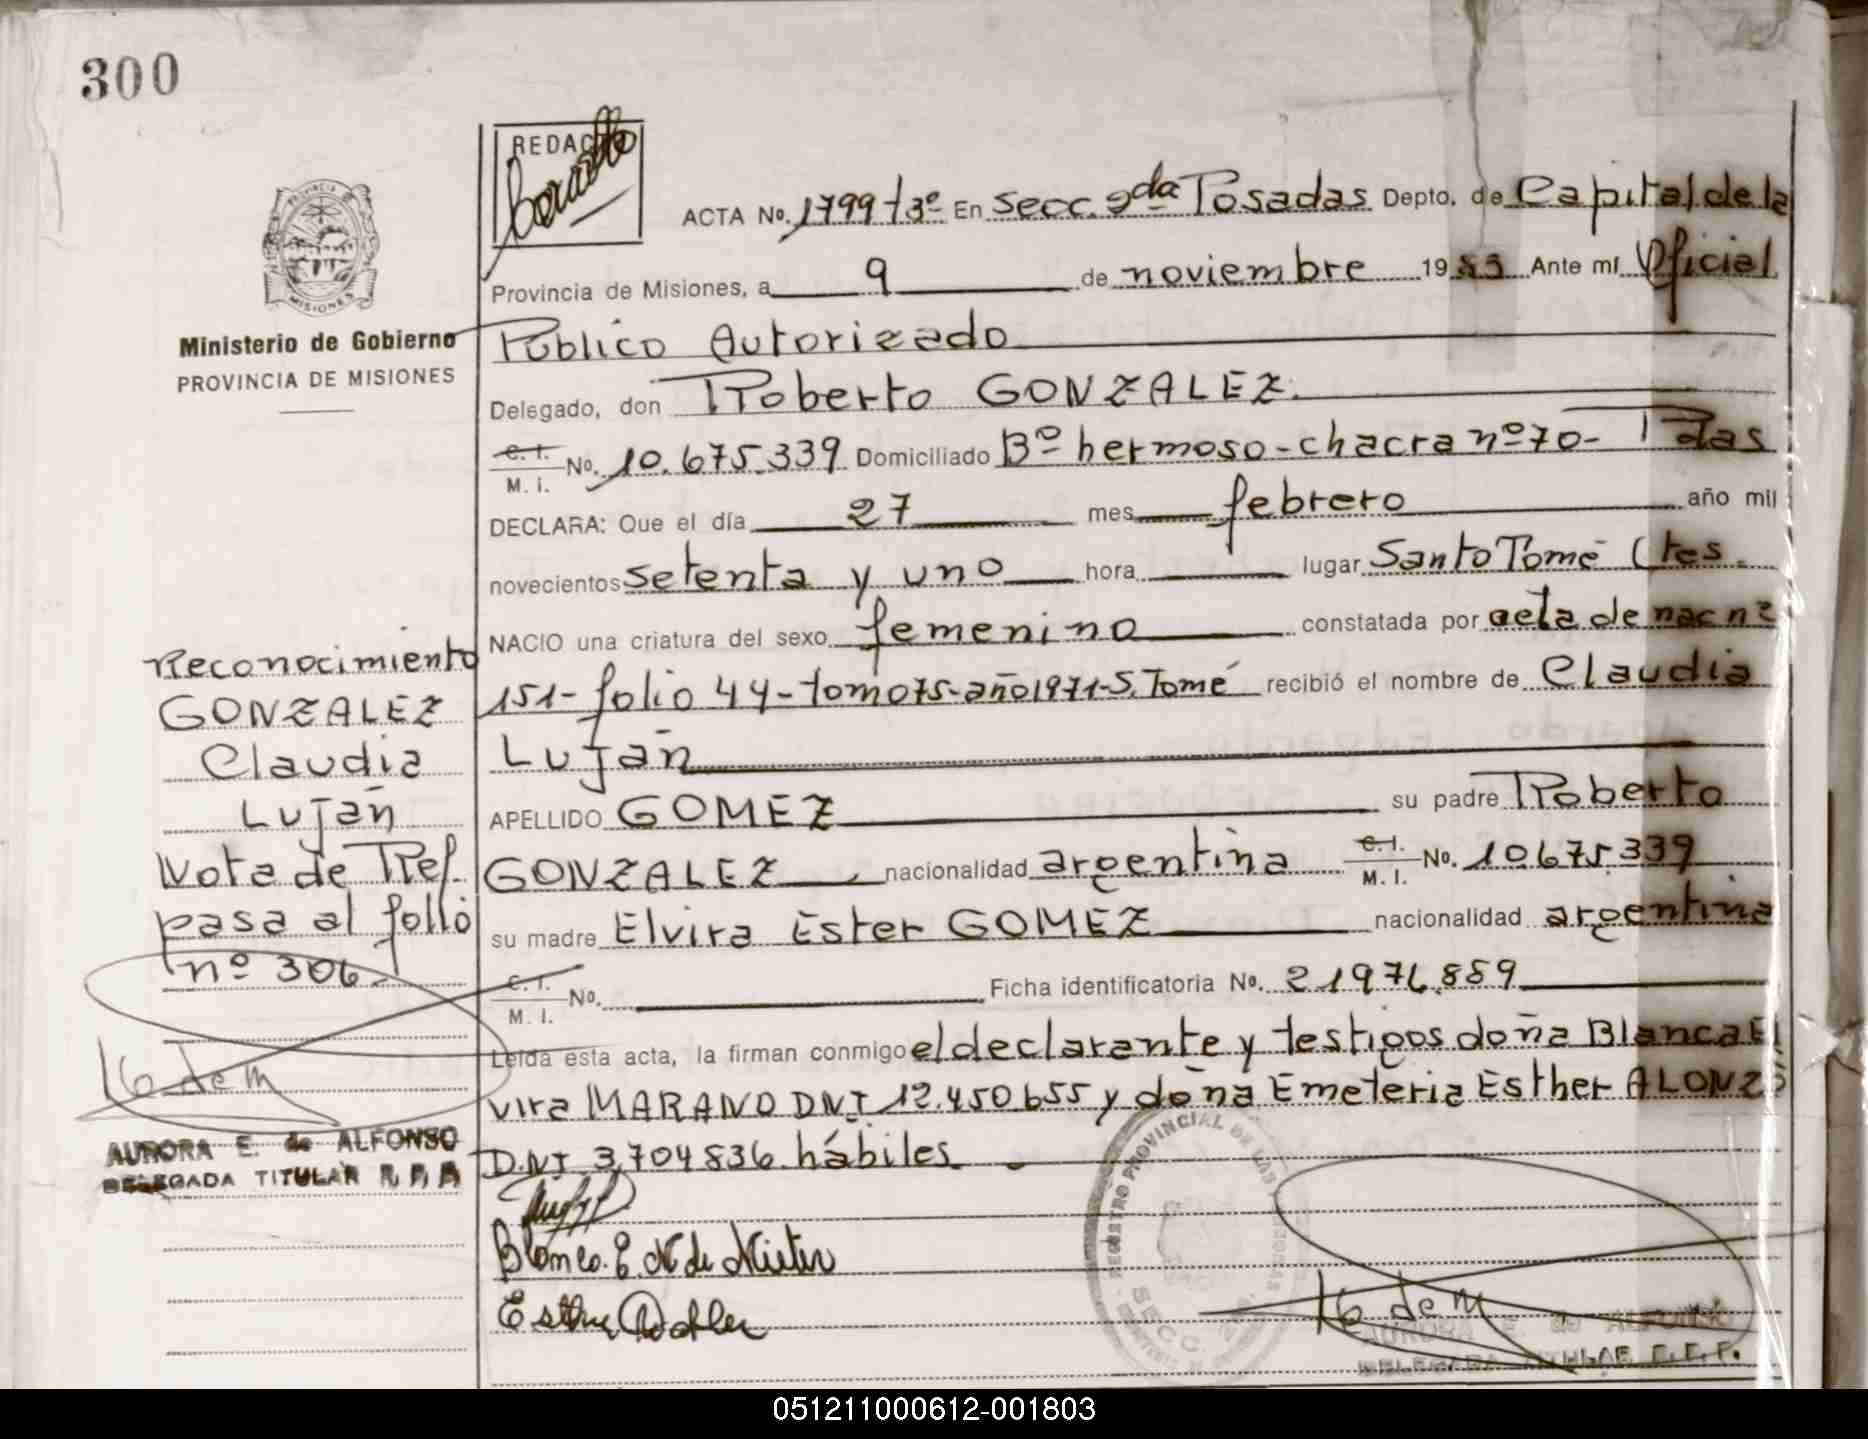 300
REDACTO
ACTA No. 1799 t3º En Secc. 2da Posadas Depto. de Capital de la
Provincia de Misiones, a 9 de noviembre 19 Ante mí Oficial
Público Autorizado
Delegado, don Roberto GONZALEZ.
C. I.
M. I. No. 10.675.339 Domiciliado Bº hermoso - chacra nº 70 - Pdas
DECLARA: Que el día 27 mes febrero año mil
novecientos setenta y uno hora lugar Santo Tomé Ctes.
NACIO una criatura del sexo femenino constatada por acta de nac nº
151 - folio 44 - tomo 75 - año 1971 - S. Tomé recibió el nombre de Claudia
Luján
APELLIDO GOMEZ su padre Roberto
GONZALEZ nacionalidad argentina C. I. M. I. No. 10.675.339
su madre Elvira Ester GOMEZ nacionalidad argentina
C. I.
M. I. No. Ficha identificatoria No. 21976.859
Leída esta acta, la firman conmigo el declarante y testigos doña Blanca El
vira MARANO DNI 12.450.655 y doña Emeteria Esther ALONZO
D.N.I 3,704836 hábiles
PROVINCIA DE
MISIONES
Ministerio de Gobierno
PROVINCIA DE MISIONES
Reconocimiento
GONZALEZ
Claudia
Luján
Nota de Ref.
pasa al folio
nº 306
AURORA E. de ALFONSO
DELEGADA TITULAR R. P. P.
REGISTRO PROVINCIAL DE LAS PERSONAS
SECC.
AURORA E. de ALFONSO
DELEGADA TITULAR
051211000612-001803